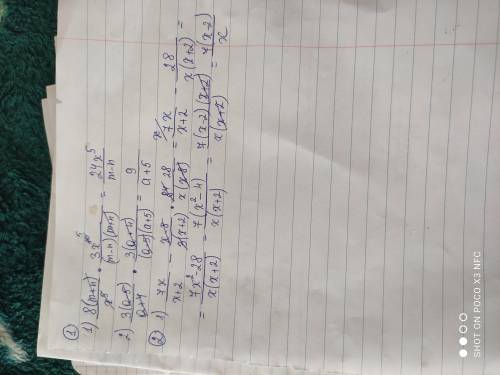 ①
1) 8(m+n)/x⁸ · 3x⁵/(m-n)(m+n) = 24x⁵/m-n
2) 3(a-5)/a+4 · 3(a+4)/(a-5)(a+5) = 9/a+5
② 1) 7x/x+2 - x-8/3(x+2) · 84 28/x(x-8) = 7x/x+2 - 28/x(x+2) =
= 7x²-28/x(x+2) = 7(x²-4)/x(x+2) = 7(x-2)(x+2)/x(x+2) = 7(x-2)/x
SHOT ON POCO X3 NFC